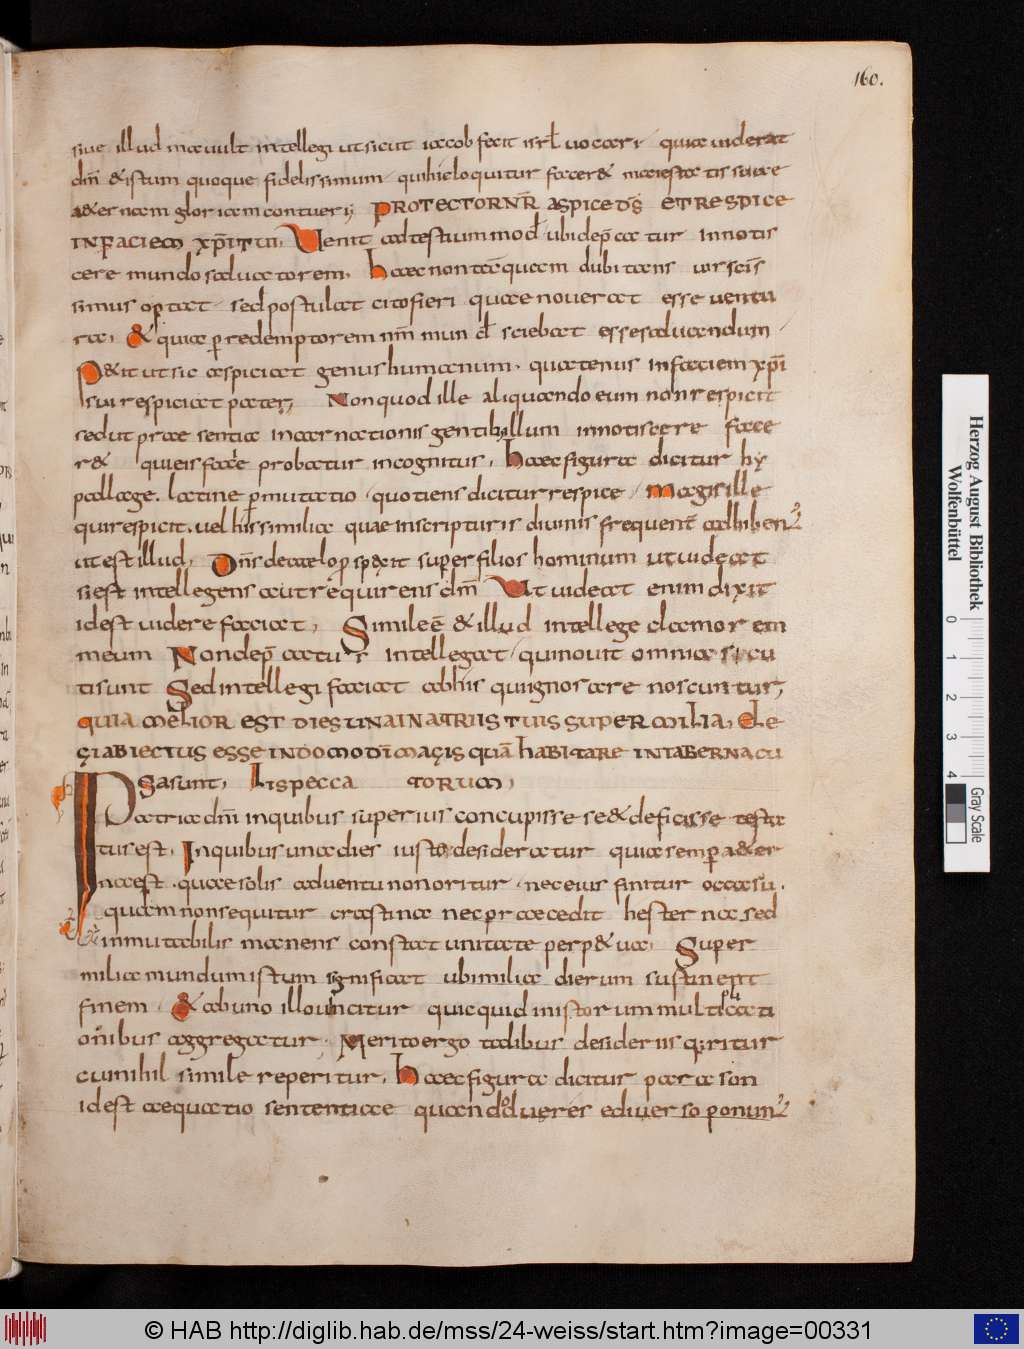 160.
siue illud mauult intellegi ut sicut iacob fecit isrl uocari quia uiderat
dm̄ & istum quoque fidelissimum qui hic loquitur facer& maiestatis suae
a&ernam gloriam contueri; PROTECTOR NR̄ ASPICE DS̄ ET RESPICE
IN FACIEM XP̄I TUI, Uenit ad testium mod ubi dep̄catur innotis
cere mundo saluatorem, haec non tā quam dubitans
simus optat sed postulat cito fieri quae nouerat esse uentu
ra, & quia p redemptorem nm̄ mund sciebat esse saluandum
P&it ut sic aspiciat genus humanum quatenus in faciem xp̄i
sui respiciat pater, Non quod ille aliquando eum non respicit
sed ut prae sentia incarnationis gentib; illum innotiscere face
r& qui eis facere probatur incognitus, haec figura dicitur hy
pallage. latine pmutatio quotiens dicitur respice magis ille
qui respicit. uel his similia quae in scripturis diuinis frequent̄ adhibent
ut est illud, Dns̄ de caelo p spexit super filios hominum ut uideat
si est intellegens aut requirens dm̄ Ut uideat enim dixit
id est uidere faciat, Simile ē & illud intellege clamorem
meum Non dep̄catur intellegat qui nouit omnia sicu
ti sunt Sed intellegi faciat ab his qui ignosare noscuntur,
QUIA MELIOR EST DIES UNA IN ATRIIS TUIS SUPER MILIA, ELE
GI ABIECTUS ESSE IN DOMO DI MAGIS QUA HABITARE IN TABERNACU
LIS PECCATORUM,
psa sunt,
atria dm̄ in quibus superius concupisse se & deficisse testa
tus est, In quibus una dies iuste desideratur quia semp a&er
na est quae solis aduentu non oritur nec eius finitur occasu.
quam non sequitur crastina nec praecedit hesterna sed
inmutabilis manens constat unitate perp&ua, Super
milia mundum istum significat ubi milia dierum sustinent
finem & ab uno illo uincitur quicquid in istorum multiplicata
omnibus aggregatur. Merito ergo talibus desideriis q̄ritur
cui nihil simile reperitur, haec figura dicitur parason
id est aequatio sententiae quando diuerse diuerso ponunt
Herzog August Bibliothek
Wolfenbüttel
0 1 2 3 4
Gray Scale
© HAB http://diglib.hab.de/mss/24-weiss/start.htm?image=00331